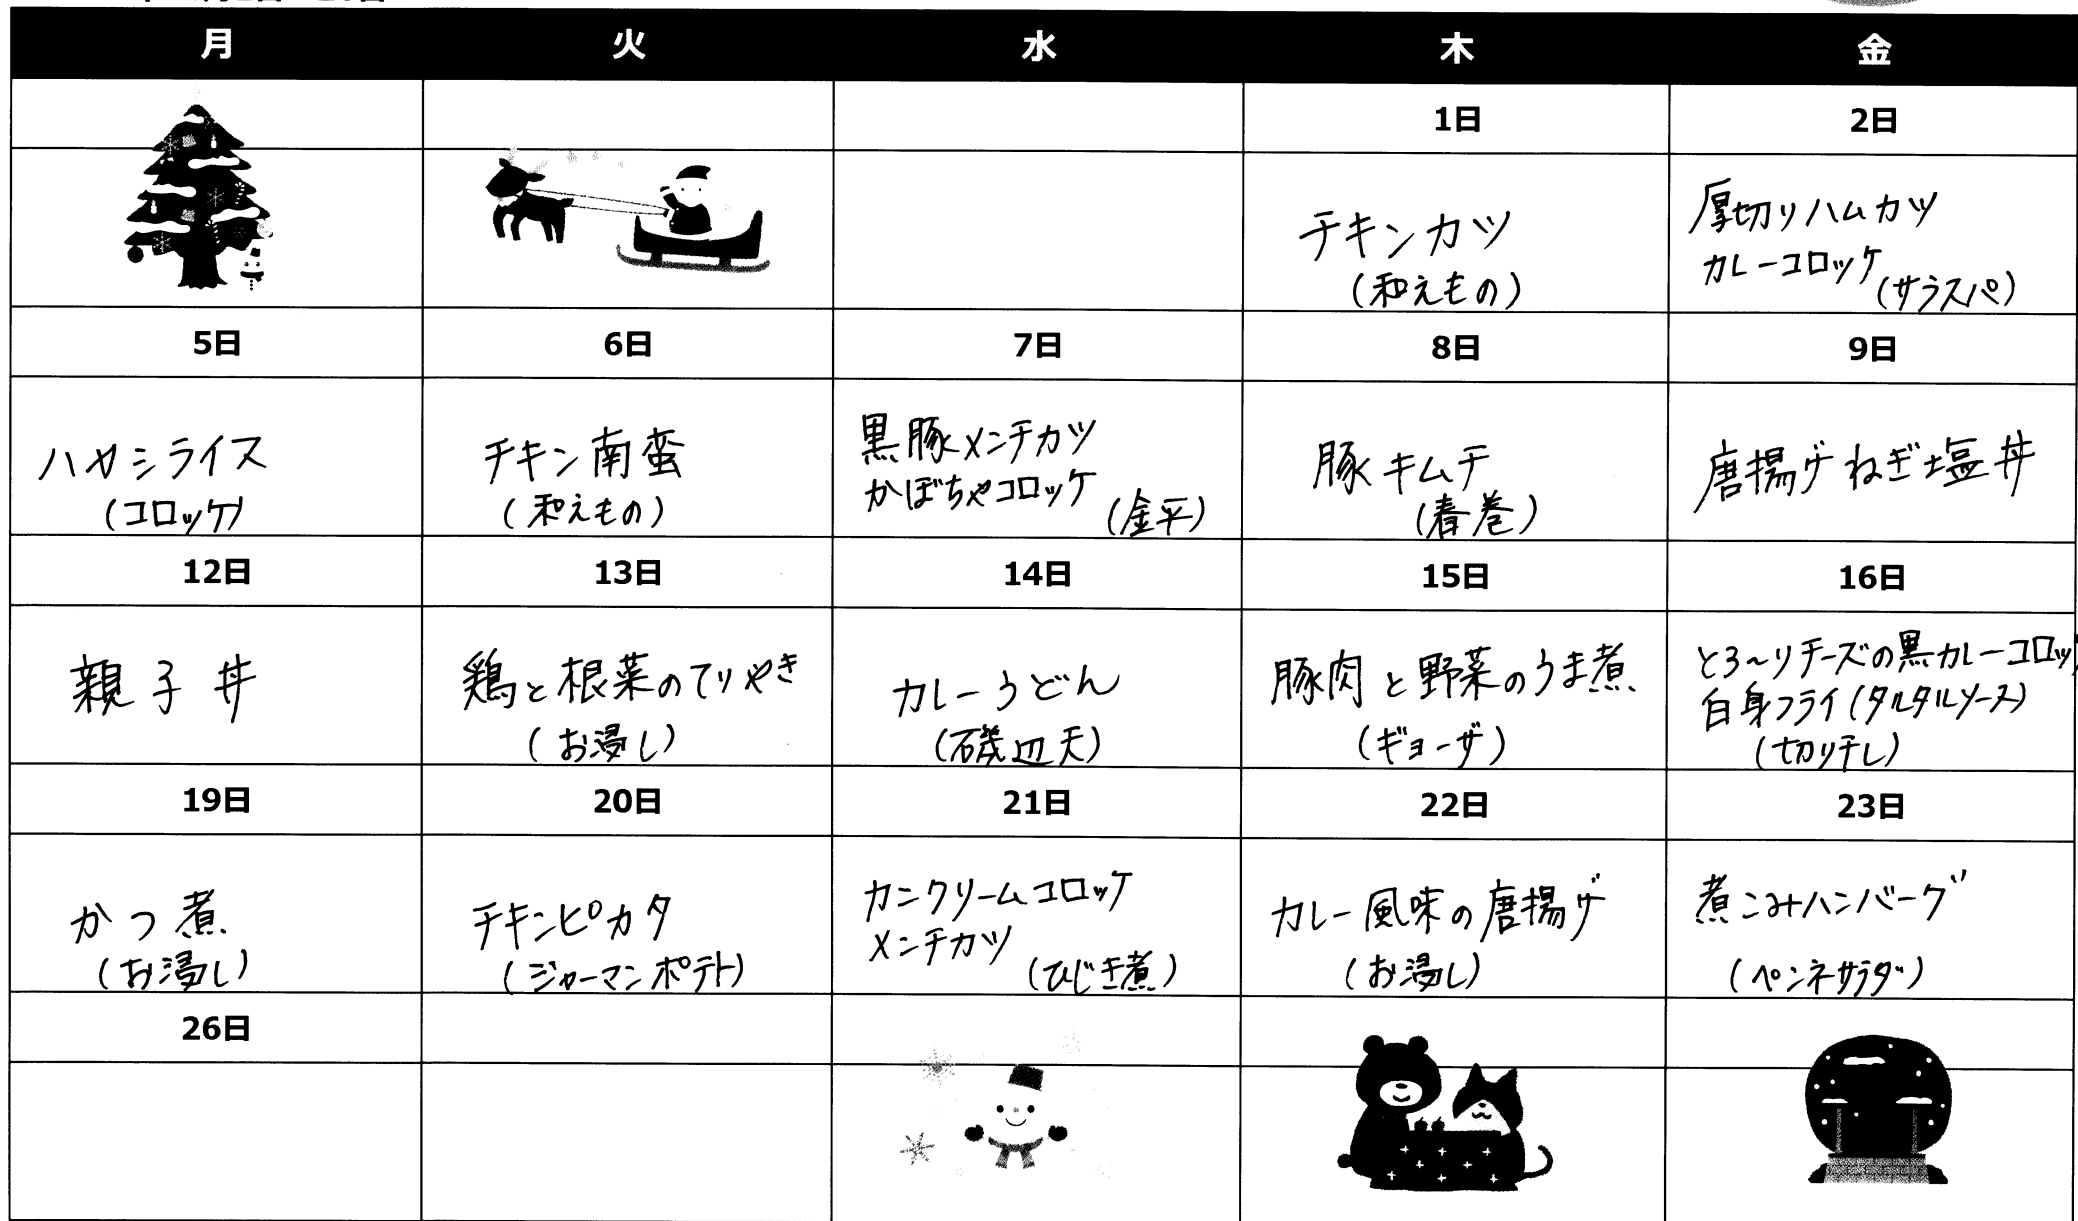 月 火 水 木 金
1日 2日
チキンカツ
(和えもの)
厚切りハムカツ
カレーコロッケ
(サラスパ)
5日 6日 7日 8日 9日
ハヤシライス
(コロッケ)
チキン南蛮
(和えもの)
黒豚メンチカツ
かぼちゃコロッケ
(金平)
豚キムチ
(春巻)
唐揚げねぎ塩丼
12日 13日 14日 15日 16日
親子丼
鶏と根菜のてりやき
(お浸し)
カレーうどん
(磯辺天)
豚肉と野菜のうま煮
(ギョーザ)
とろ~りチーズの黒カレーコロッ
白身フライ(タルタルソース)
(切り干し)
19日 20日 21日 22日 23日
かつ煮
(お浸し)
チキンピカタ
(ジャーマンポテト)
カニクリームコロッケ
メンチカツ
(ひじき煮)
カレー風味の唐揚げ
(お浸し)
煮こみハンバーグ
(ペンネサラダ)
26日